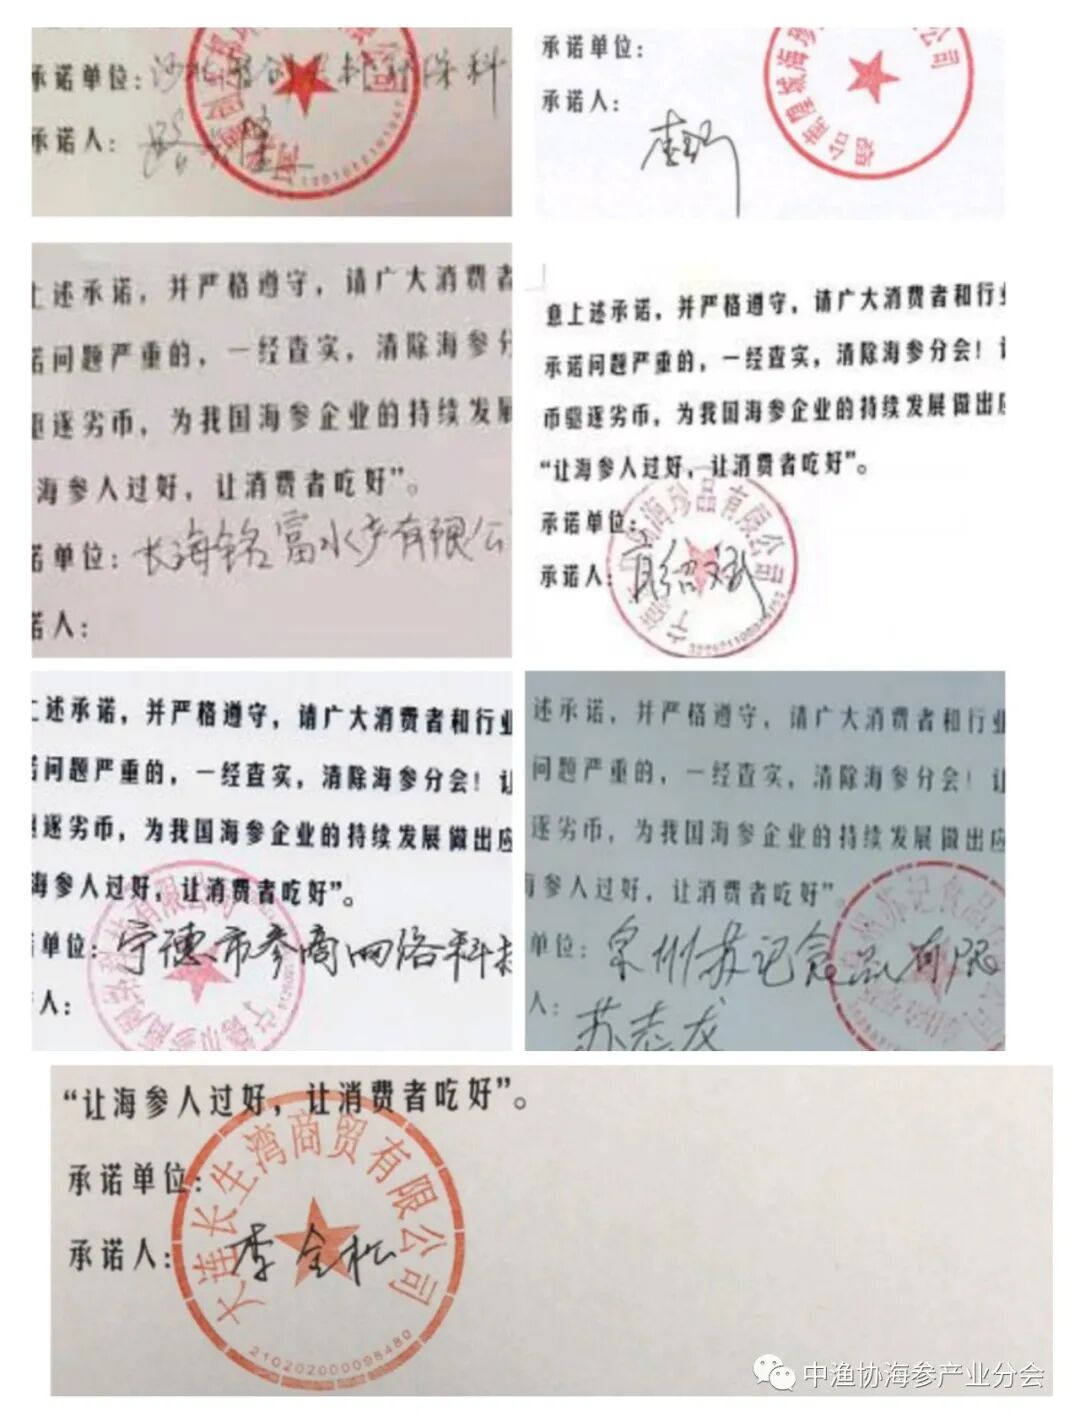 承诺单位:
承诺人:
承诺单位:
承诺人:
上述承诺，并严格遵守，请广大消费者
诺问题严重的，一经查实，清除海参分
驱逐劣币，为我国海参企业的持续发展
海参人过好，让消费者吃好”。
诺单位: 长海铭富水产有限公
诺人:
意上述承诺，并严格遵守，请广大消费者和行业
承诺问题严重的，一经查实，清除海参分会！让
币驱逐劣币，为我国海参企业的持续发展做出应
“让海参人过好，让消费者吃好”。
海珍品有限公司
承诺单位:
承诺人:
上述承诺，并严格遵守，请广大消费者和行业
诺问题严重的，一经查实，清除海参分会！让
驱逐劣币，为我国海参企业的持续发展做出应
海参人过好，让消费者吃好”。
单位: 宁德市参商网络科技
人:
述承诺，并严格遵守，请广大消费者和行业
问题严重的，一经查实，清除海参分会！让
逐劣币，为我国海参企业的持续发展做出应
海参人过好，让消费者吃好”。
单位: 泉州苏记食品有限
人: 苏志龙
“让海参人过好，让消费者吃好”。
承诺单位:
承诺人: 李全松
大连长生湾商贸有限公司
2102020000098480
中渔协海参产业分会